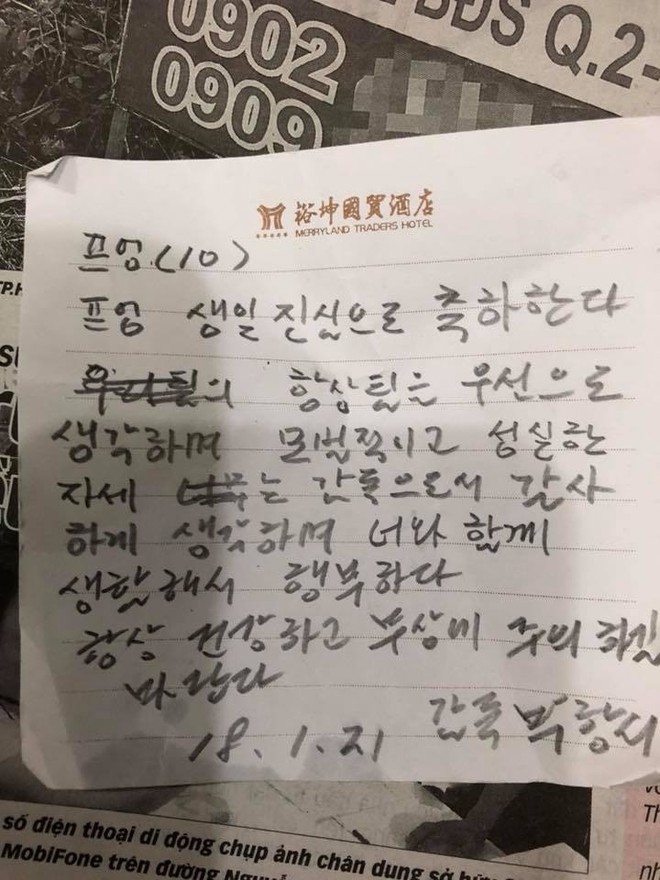 0902
0909
BĐS Q.2-
裕坤國貿酒店
MERRYLAND TRADERS HOTEL
프엉(10)
프엉 생일 진심으로 축하한다
항상팀을 우선으로
생각하며 모범적이고 성실한
자세 는 감독으로서 감사
하게 생각하며 너와 함께
생활해서 행복하다
항상 건강하고 부상미 주의 하길
바란다
18.1.21 감독 박항서
số điện thoại di động chụp ảnh chân dung sở hữu
MobiFone trên đường